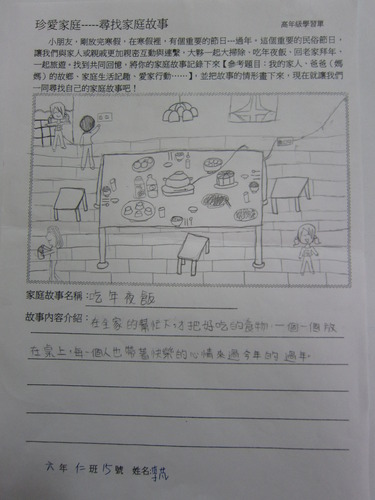 珍愛家庭-----尋找家庭故事
高年級學習單
小朋友，剛放完寒假，在寒假裡，有個重要的節日---過年，這個重要的民俗節日，
讓我們與家人或親戚更加親密互動與連繫，大夥一起大掃除、吃年夜飯、回老家拜年、
一起旅遊，找到共同回憶，將你的家庭故事記錄下來【參考題目：我的家人、爸爸（媽
媽）的故鄉、家庭生活記趣、愛家行動……】，並把故事的情形畫下來，現在就讓我們
一同尋找自己的家庭故事吧！
家庭故事名稱：吃年夜飯
故事內容介紹：在全家的幫忙下才把好吃的食物，一個一個放
在桌上，每一個人也帶著快樂的心情來過今年的過年。
六年仁班15號 姓名：